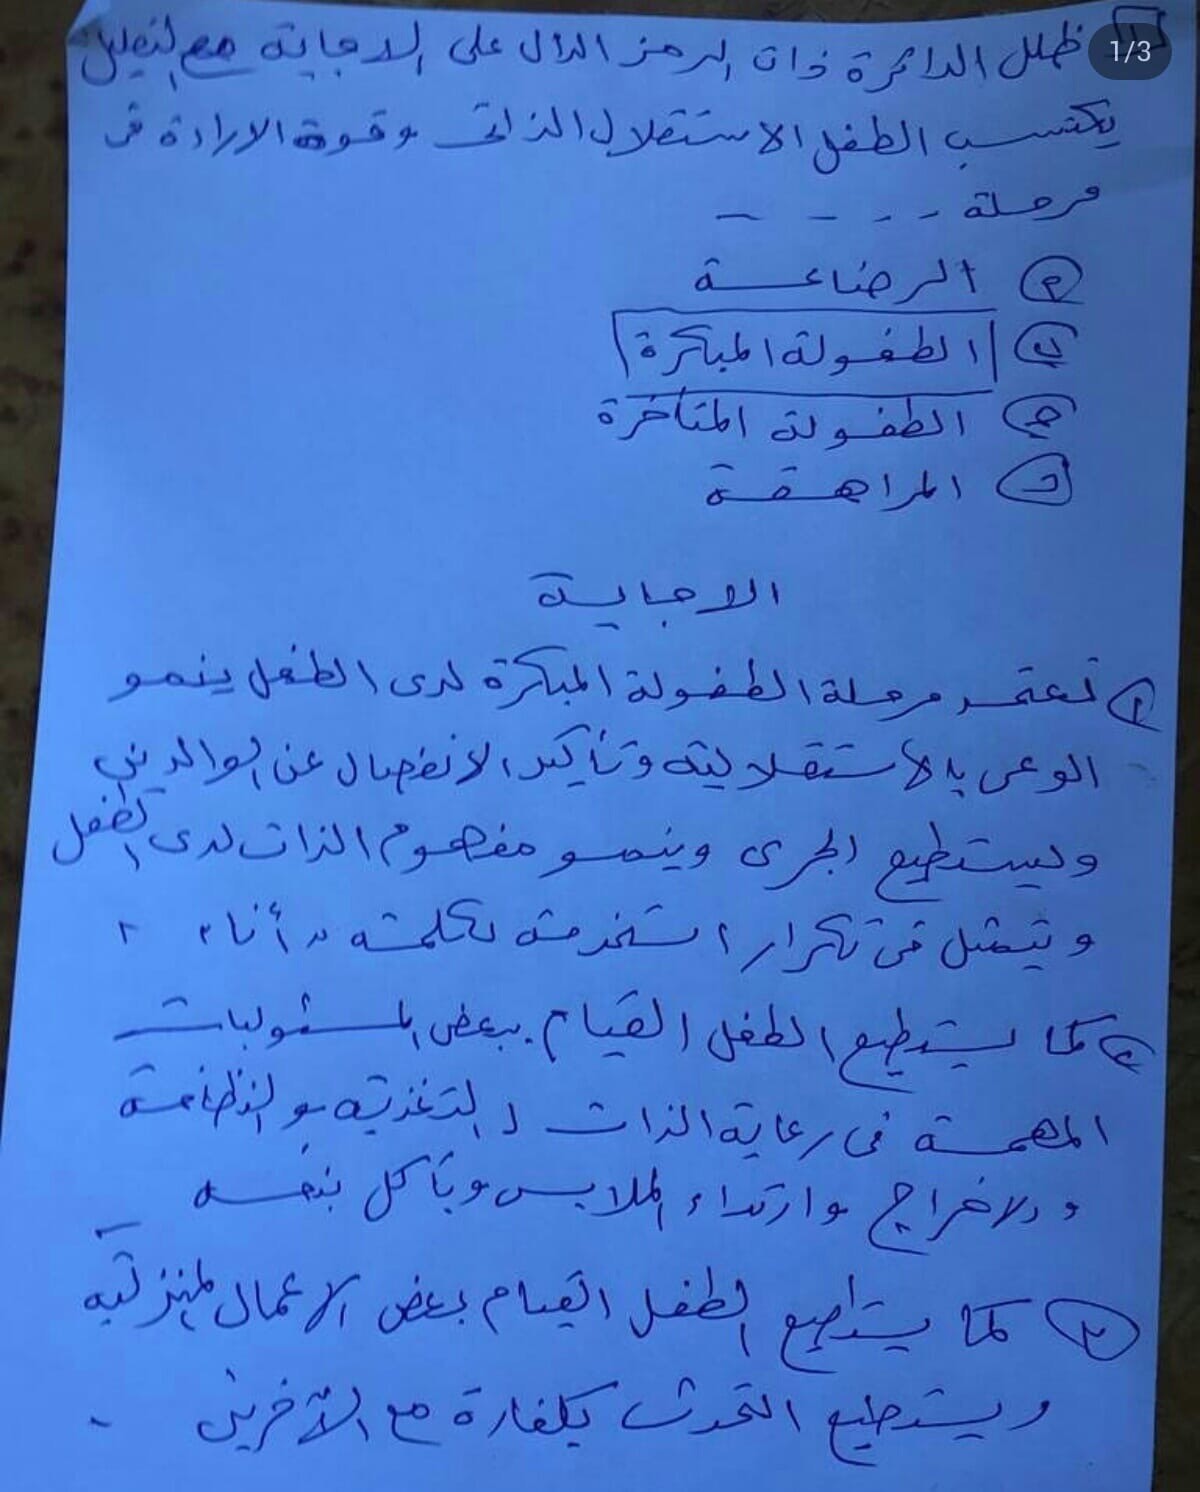 1/3
ظلل الدائرة ذات الرمز الدال على الاجابة مع التعليل
يكتسب الطفل الاستقلال الذاتى وقوة الارادة فى
مرحلة - - - -
أ الرضاعة
ب الطفولة المبكرة
ج الطفولة المتاخرة
د المراهقة
الاجابة
١ تعتمد مرحلة الطفولة المبكرة لدى الطفل ينمو
الوعى بالاستقلالية وتأكيد الانفصال عن الوالدين
ويستطيع الجرى وينمو مفهوم الذات لدى الطفل
ويتمثل فى تكرار استخدمة لكلمته "أنا"
٢ كما يستطيع الطفل القيام ببعض المسئوليات
المهمة فى رعاية الذات التغذية والنظافة
والاخراج وارتداء الملابس ويأكل بنفسه
٣ كما يستطيع الطفل القيام بعض الاعمال المنزلية
ويستطيع التحدث بكفارة مع الآخرين